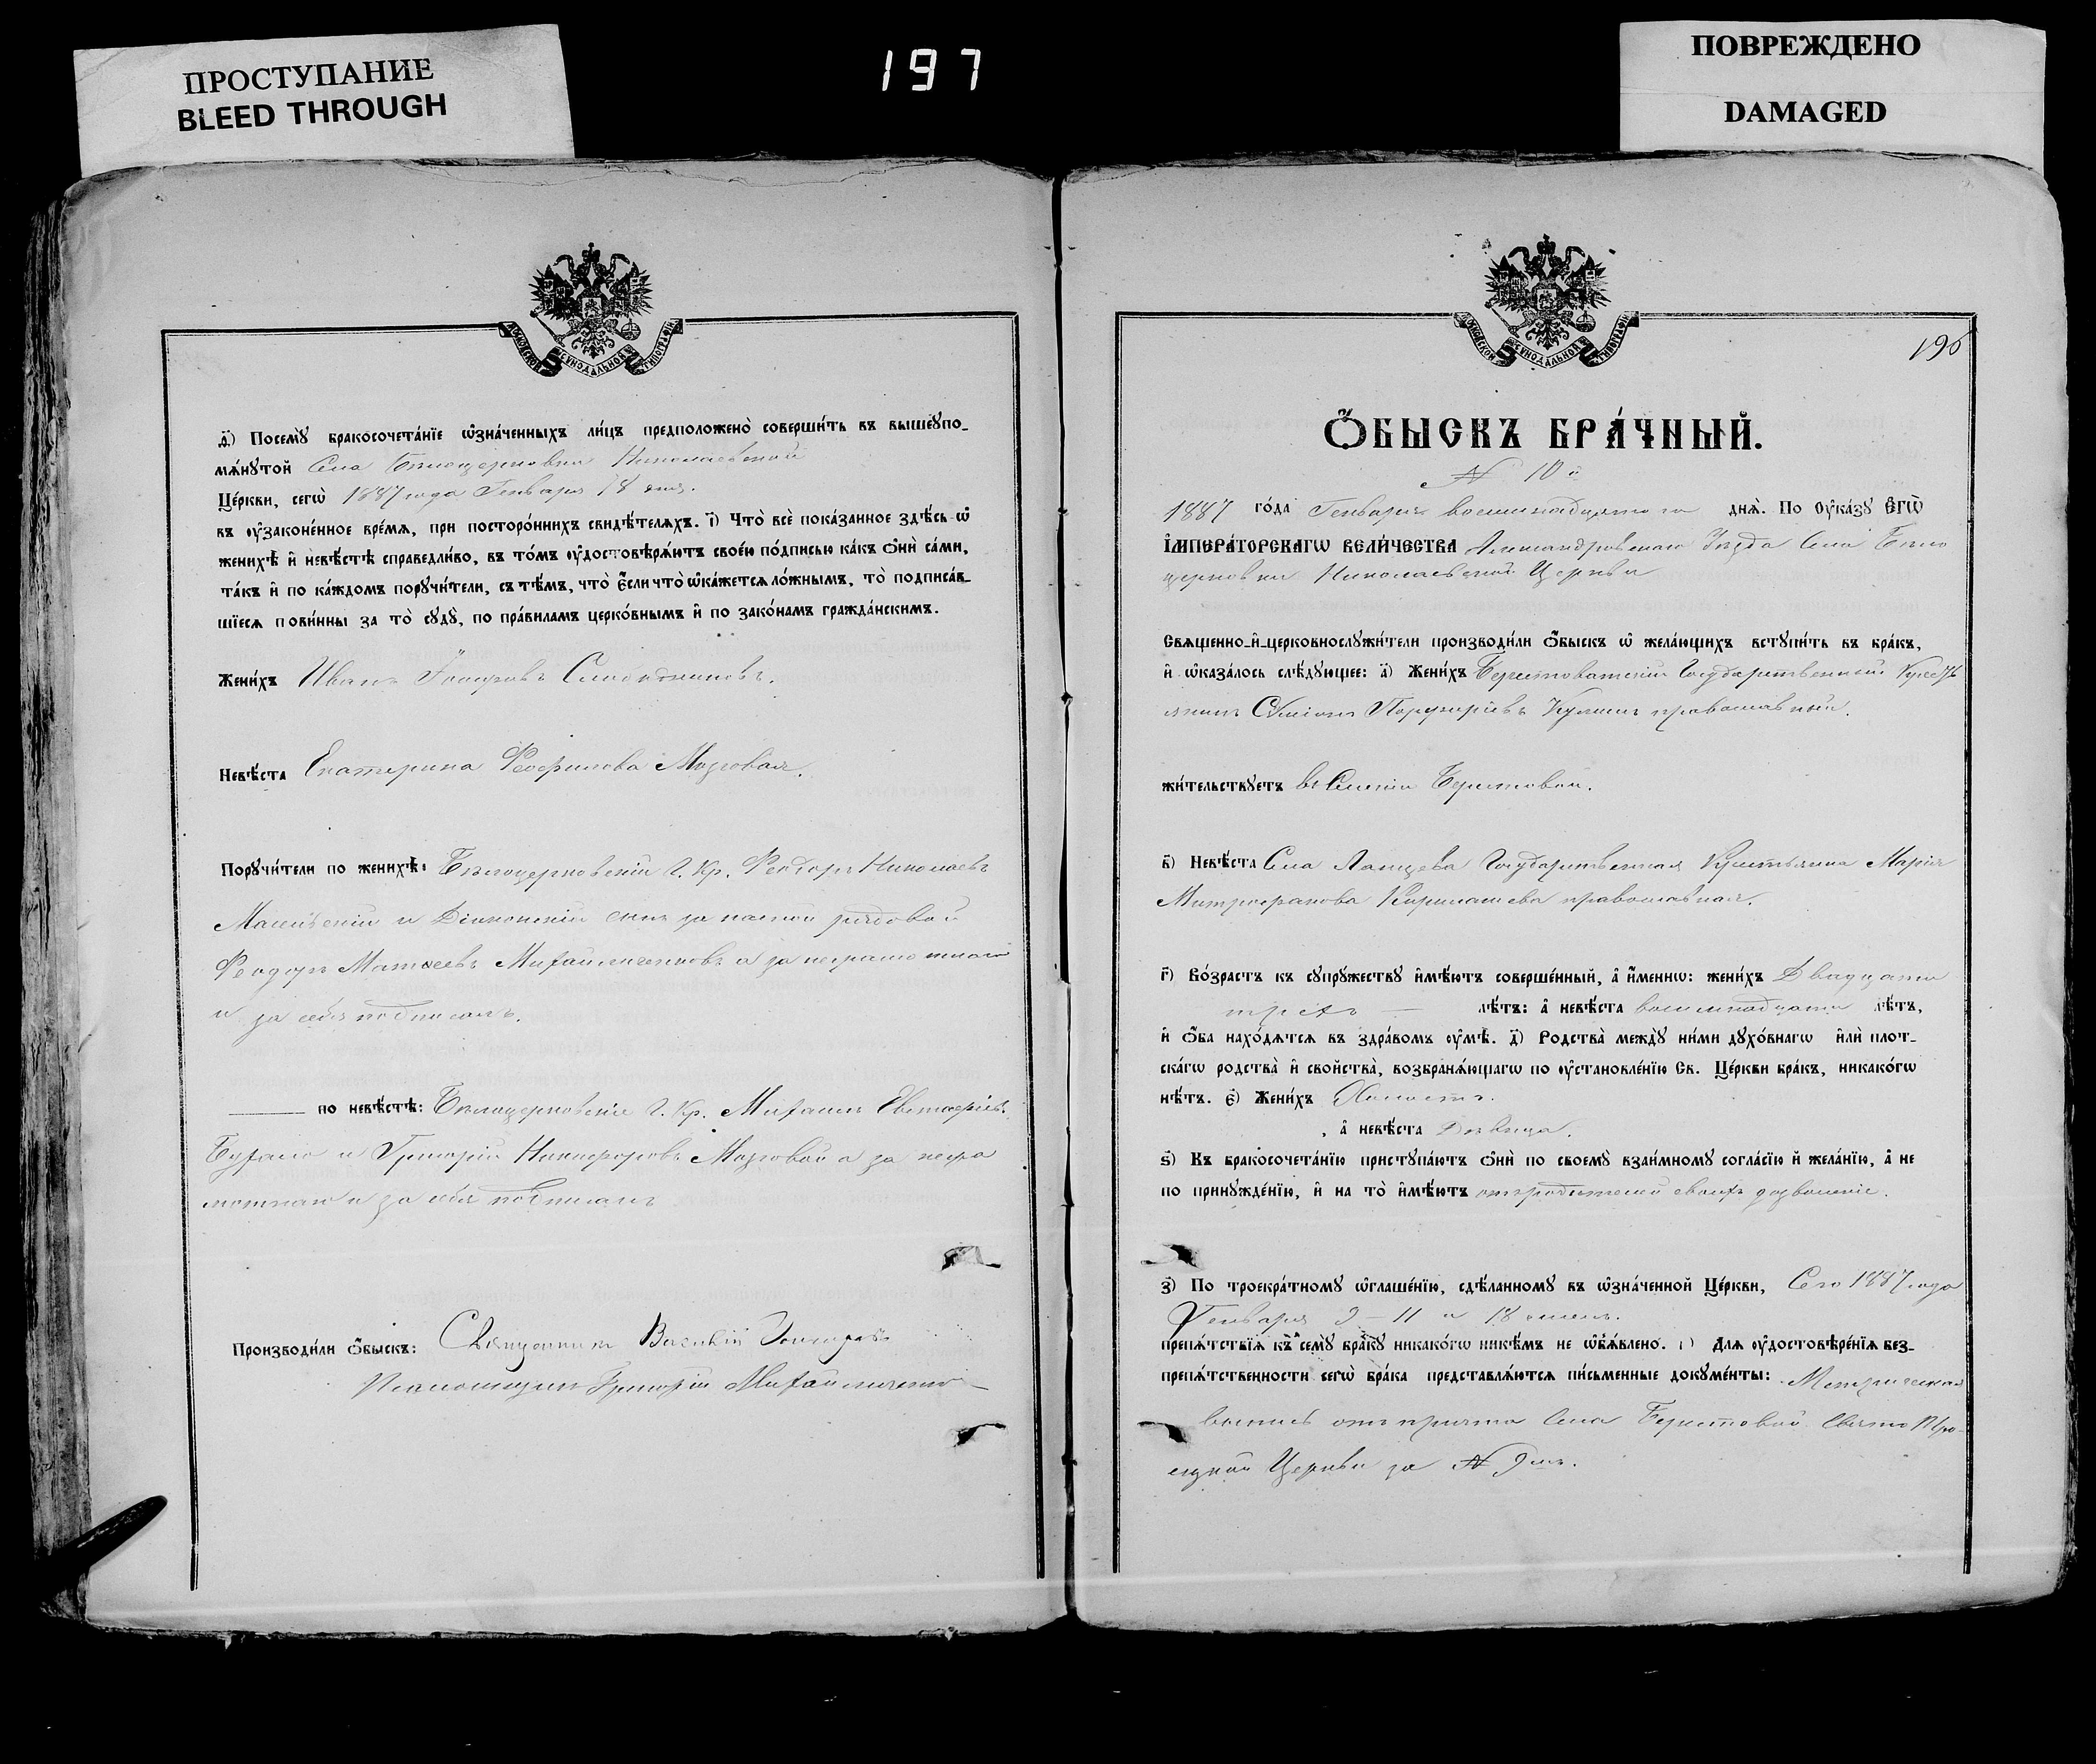 ПРОСТУПАНИЕ
BLEED THROUGH
197
ПОВРЕЖДЕНО
DAMAGED
МОСКОВСКОЙ СѴНОДАЛЬНОЙ ТИПОГРАФІИ
д҃і) Посемꙋ̀ бракосочета́нїе ѡ҆зна́ченныхъ ли́цъ предположено̀ соверши́ть въ вышеꙋпо-
мѧ́нꙋтой Села Белоцерковки Николаевской
Це́ркви, сегѡ̀ 1887 года Генваря 18 дня.
въ ᲂу҆законе́нное вре́мѧ, при посторо́ннихъ свидѣ́телѧхъ. і҃) Что̀ всѐ пока́занное здѣ́сь ѡ҆
женихѣ̀ и҆ невѣ́стѣ справедли́во, въ то́мъ ᲂу҆достовѣрѧ́ютъ своею по́дписью ка́къ ѻ҆нѝ са́ми,
та́къ и҆ по ка́ждомъ порꙋчи́тели, съ тѣ́мъ, что̀ є҆́сли что̀ ѡ҆ка́жетсѧ ло́жнымъ, то̀ подписа́в-
шїесѧ пови́нны за то̀ сꙋдꙋ̀, по пра́виламъ церко́внымъ и҆ по зако́намъ гражда́нскимъ.
Жени́хъ Иванъ Слободяниковъ.
Невѣ́ста Екатерина Феофилова Мозговая.
Порꙋчи́тели по женихѣ̀: Белоцерковскій Г. Кр. Феодоръ Николаевъ
и за рядовой
Феодоръ Матвеевъ Михайличенковъ а за неграмотнаго
и за себя подписалъ.
по невѣ́стѣ: Белоцерковскіе Г. Кр. Михаилъ Евстафіевъ
и Григорій Никифоровъ Мозговой а за негра
мотнаго и за себя подписалъ
Производи́ли ѻ҆́быскъ: Священникъ Василій
Псаломщикъ Григорій Михайличенко
МОСКОВСКОЙ СѴНОДАЛЬНОЙ ТИПОГРАФІИ
196
Ѻ҆́БЫСКЪ БРА́ЧНЫЙ.
N 10й
1887 го́да Генваря восемнадцатаго днѧ̀. По Оу҆ка́зꙋ Є҆гѡ̀
І҆МПЕРА́ТОРСКАГѠ ВЕЛИ́ЧЕСТВА Александровскаго Уѣзда Села Бело
церковки Николаевской Церкви
Свѧщенно-и҆-церковнослꙋжи́тели производи́ли ѻ҆́быскъ ѡ҆ жела́ющихъ встꙋпи́ть въ бра́къ,
и҆ ѡ҆каза́лось слѣ́дꙋющее: а҃) Жени́хъ Берестоватскій Государственный Кресть
янинъ Сѵмеонъ Порфиріевъ православный.
жи́тельствꙋетъ въ Селеніи Берестовой.
в҃) Невѣ́ста Села Ланцева Государственная Крестьянка Марія
Митрофанова Кирилашева православная.
г҃) Во́зрастъ къ сꙋпрꙋ́жествꙋ и҆мѣ́ютъ соверше́нный, а҆ и҆́меннѡ: жени́хъ Двадцати
трехъ — лѣ́тъ: а҆ невѣ́ста восемнадцати лѣ́тъ,
и҆ ѻ҆́ба нахо́дѧтсѧ въ здра́вомъ ᲂу҆мѣ̀. д҃) Родства̀ междꙋ̀ ни́ми дꙋхо́внагѡ и҆лѝ плот-
ска́гѡ родства̀ и҆ свойства̀, возбранѧ́ющагѡ по ᲂу҆становле́нїю Св. Це́ркви бра́къ, никако́гѡ
нѣ́тъ. є҃) Жени́хъ Холостъ.
, а҆ невѣ́ста Дѣвица.
ѕ҃) Къ бракосочета́нїю пристꙋпа́ютъ ѻ҆нѝ по своемꙋ̀ взаи́мномꙋ согла́сїю и҆ жела́нїю, а҆ не
по принꙋжде́нїю, и҆ на то̀ и҆мѣ́ютъ отъ родителей своихъ дозволеніе.
з҃) По троекра́тномꙋ ѡ҆глаше́нїю, сдѣ́ланномꙋ въ ѡ҆зна́ченной Це́ркви, Сего 1887 года
Генваря 9 – 11 и 18 чиселъ.
препѧ́тствїѧ къ семꙋ̀ бра́кꙋ никако́гѡ никѣ́мъ не ѡ҆б̾ѧ́влено. и҃) Длѧ ᲂу҆достовѣре́нїѧ без-
препѧ́тственности сегѡ̀ бра́ка представлѧ́ютсѧ пи́сьменные докꙋме́нты: Метрическая
выпись отъ причта Села Берестовой Свято Тро-
ицкой Церкви за N 9мъ.